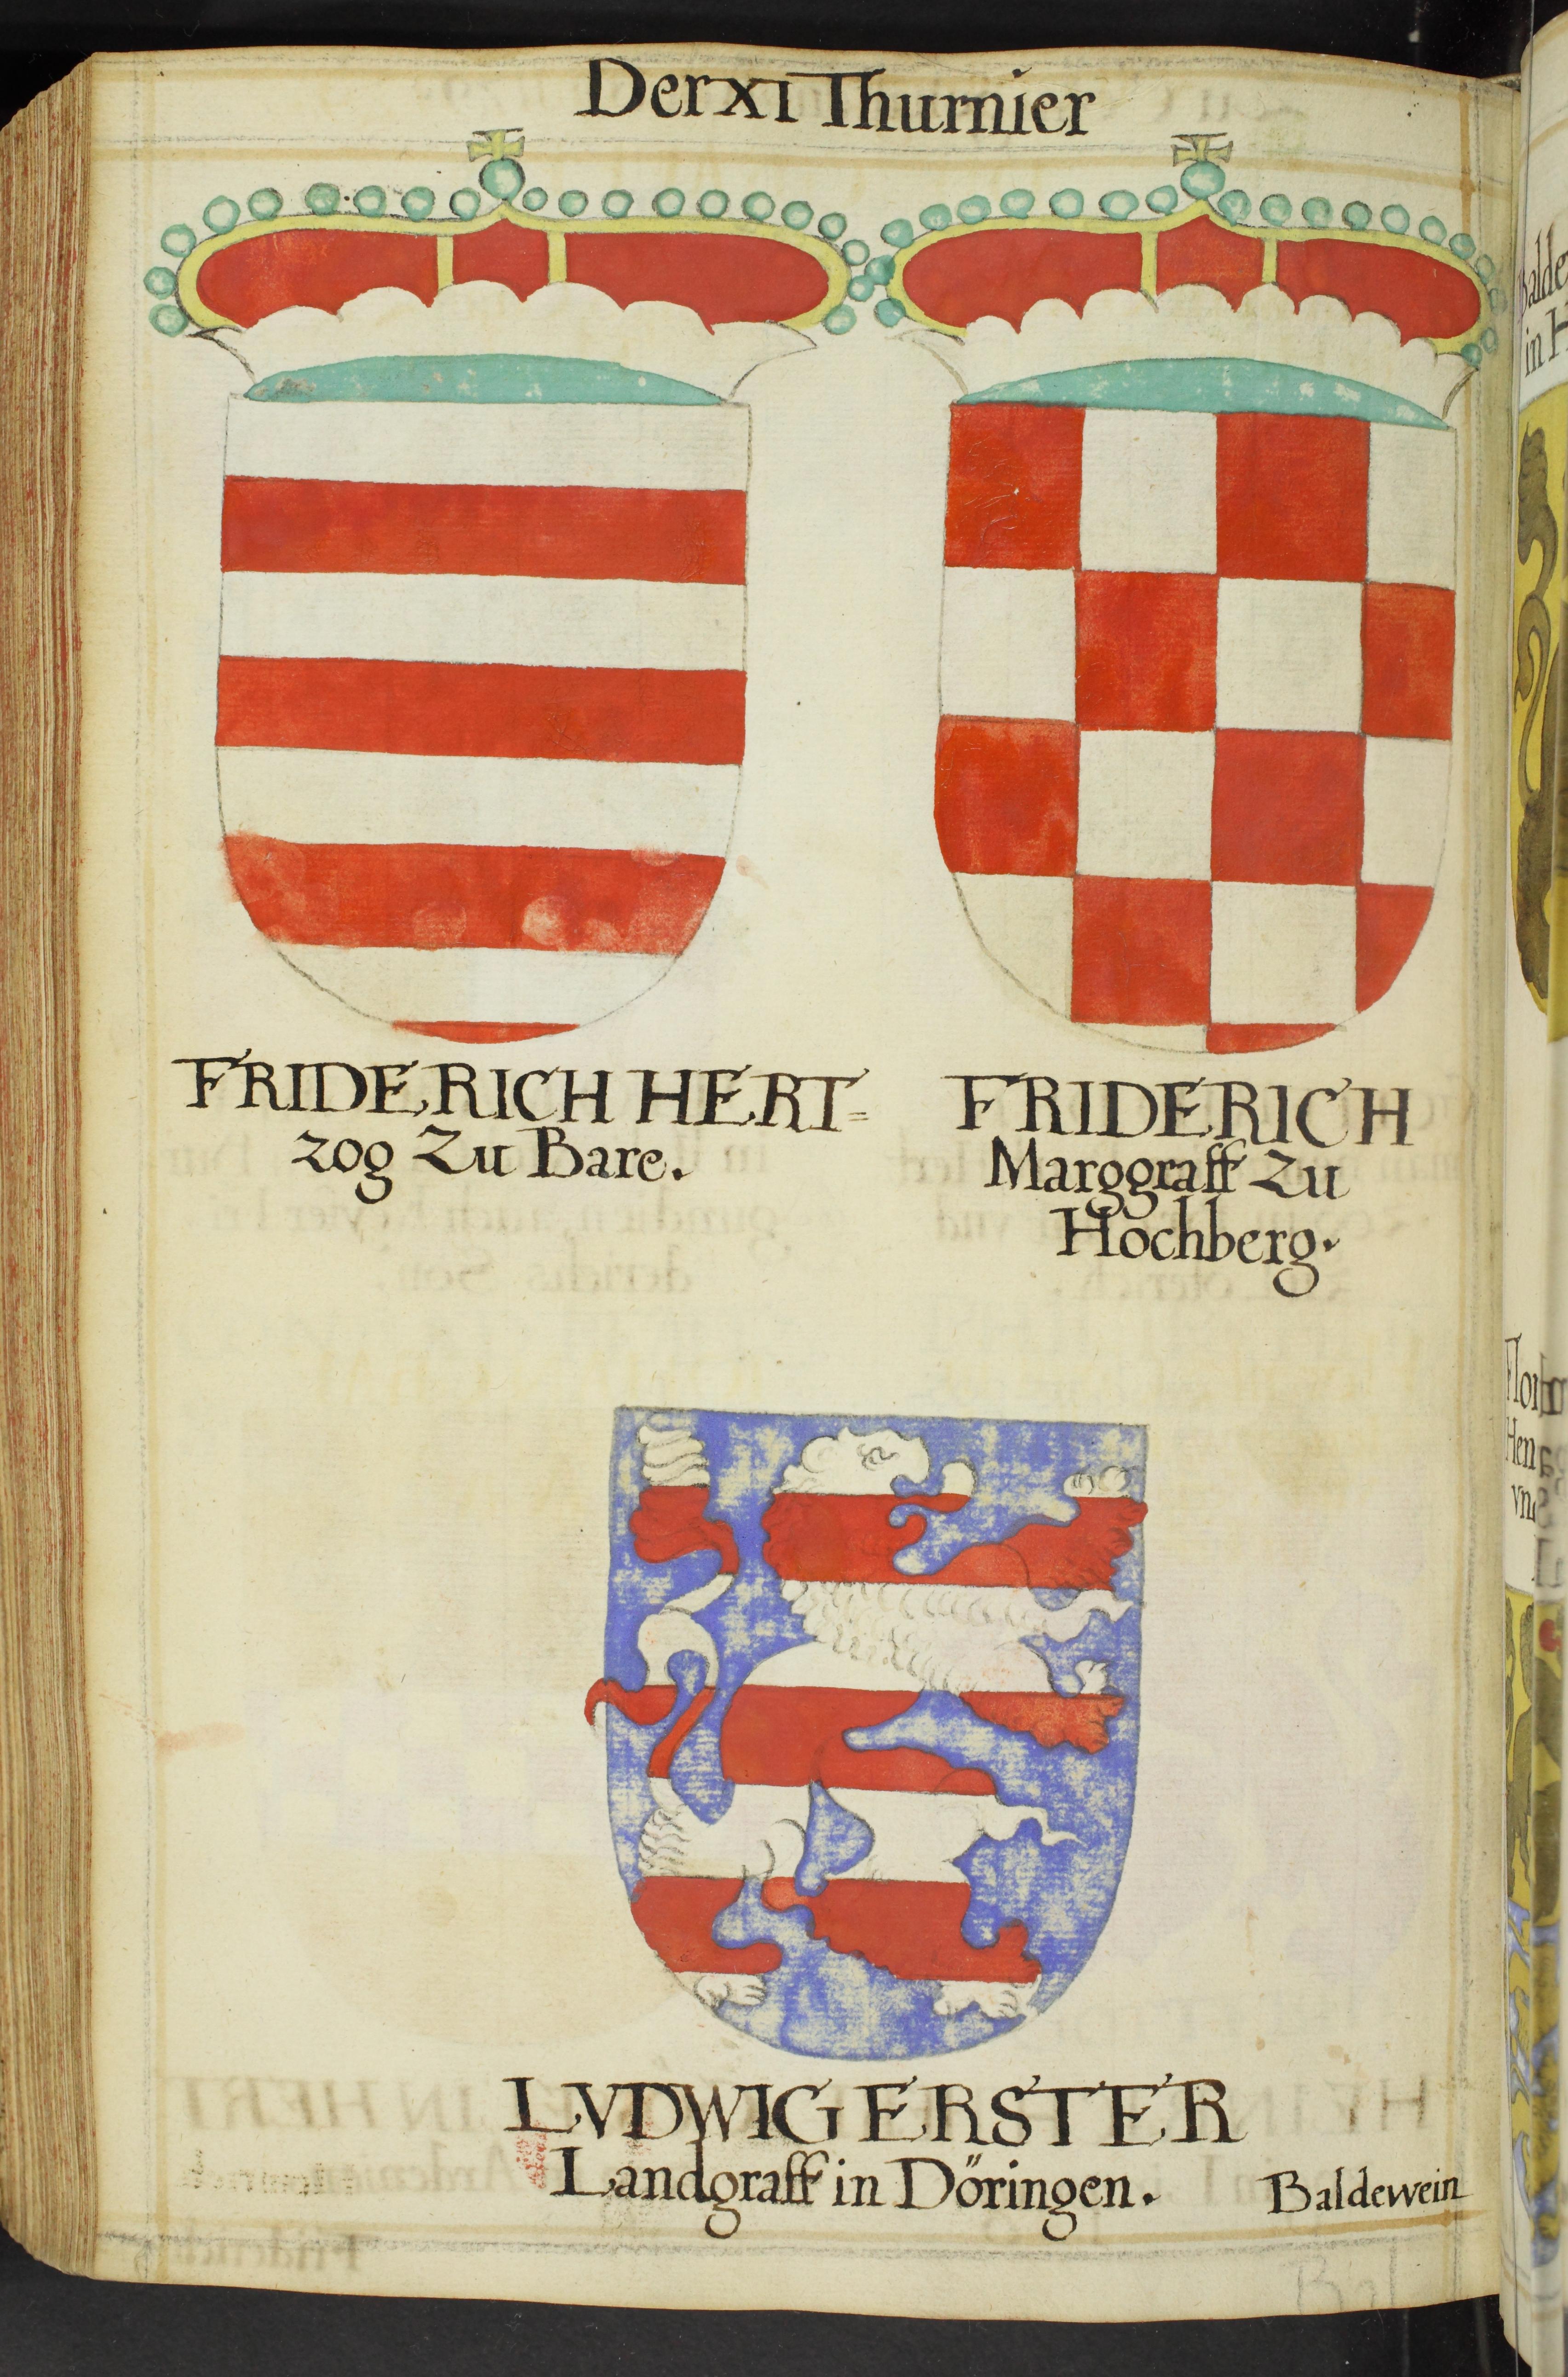 Der XI Thurnier
FRIDERICH HERT=
zog Zu Bare.
FRIDERICH
Marggraff Zu
Hochberg.
LVDWIG ERSTER
Landgraff in Döringen.
Baldewein